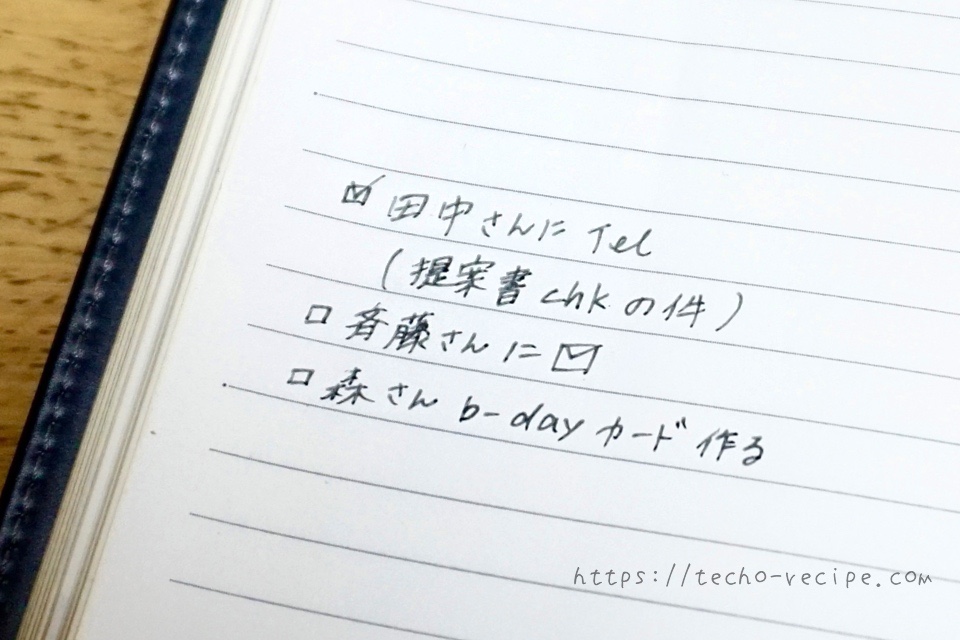 ☑ 田中さんに Tel
(提案書 chk の件)
□ 斉藤さんに ✉
□ 森さん b-day カード 作る
https://techo-recipe.com